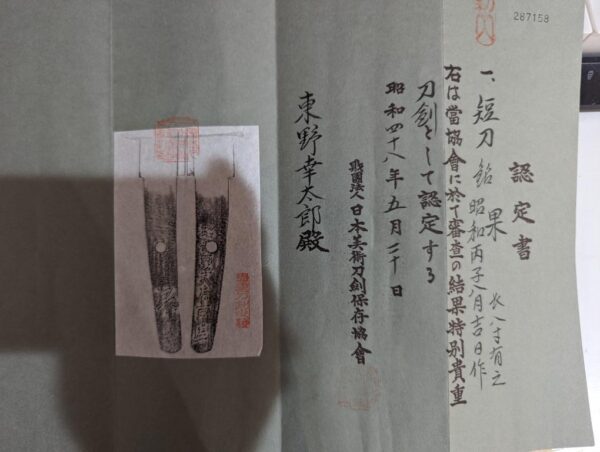 287158
認定書
一、短刀 銘 果
昭和丙子八月吉日作
長八寸有之
右は當協會に於て審査の結果特別貴重
刀劍として認定する
昭和四十八年五月
財團法人日本美術刀劍保存協會
東野幸太郎殿